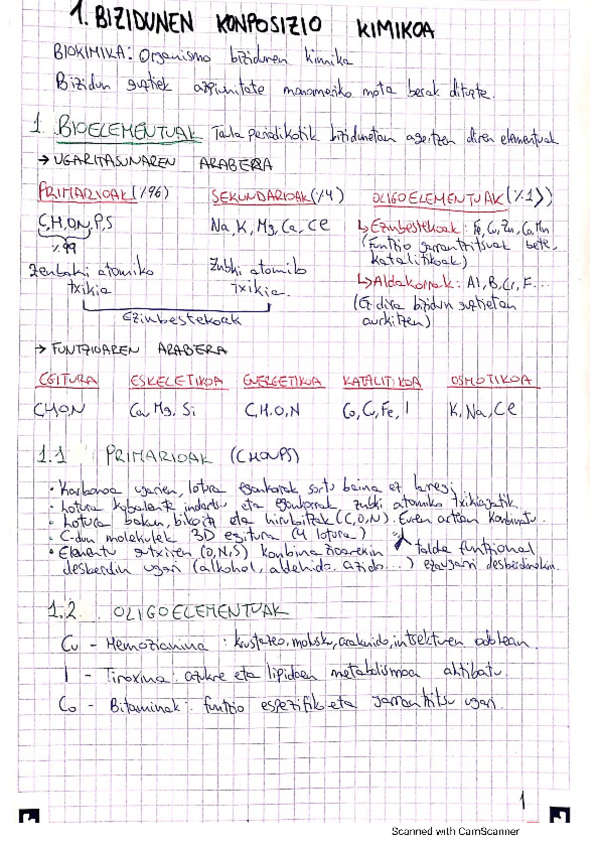 1. BIZIDUNEN KONPOSIZIO KIMIKOA
BIOKIMIKA: Organismo bizidunen kimika
Bizidun guztiek azpiunitate monomeriko mota berak dituzte.
1 BIOELEMENTUAK Taula periodikotik bizidunetan agertzen diren elementuak
→ UGARITASUNAREN ARABERA
PRIMARIOAK (%96) SEKUNDARIOAK (%4) OLIGOELEMENTUAK (%1>)
C,H,O,N,P,S Na, K, Mg, Ca, Cl ↳ Ezinbestekoak: Fe, Cu, Zn, Co, Mn
%99 (Funtzio garrantzitsuak bete,
katalitikoak)
Zenbaki atomiko Znbki atomiko ↳ Aldakorrak: Al, B, Cr, F...
txikia txikia. (Ez dira bizidun guztietan
Ezinbestekoak aurkitzen)
→ FUNTZIOAREN ARABERA
EGITURA ESKELETIKOA ENERGETIKOA KATALITIKOA OSMOTIKOA
CHON Ca, Mg, Si C,H,O,N Co, Cu, Fe, I K, Na, Cl
1.1 PRIMARIOAK (CHONPS)
• Karbonoa ugarien, lotura egonkorrak sortu baina ez larregi
• Lotura kobalente indartsu eta egonkorrak znbki atomiko txikiagatik
• Lotura bakun, bikoitz eta hirukoitzak (C,O,N). Euren artean konbinatu.
• C-dun molekulek 3D egitura (4 lotura)
• Elementu gutxiren (O,N,S) konbinazioarekin talde funtzional
desberdin ugari (alkohol, aldehido, azido...) ezaugarri desberdinekin.
1.2 OLIGOELEMENTUAK
Cu - Hemozianina: krustazeo, molusku, araknido, intsektuen odolean.
I - Tiroxina: azukre eta lipidoen metabolismoa aktibatu.
Co - Bitaminak: funtzio espezifiko eta garrantzitsu ugari.
1
Scanned with CamScanner